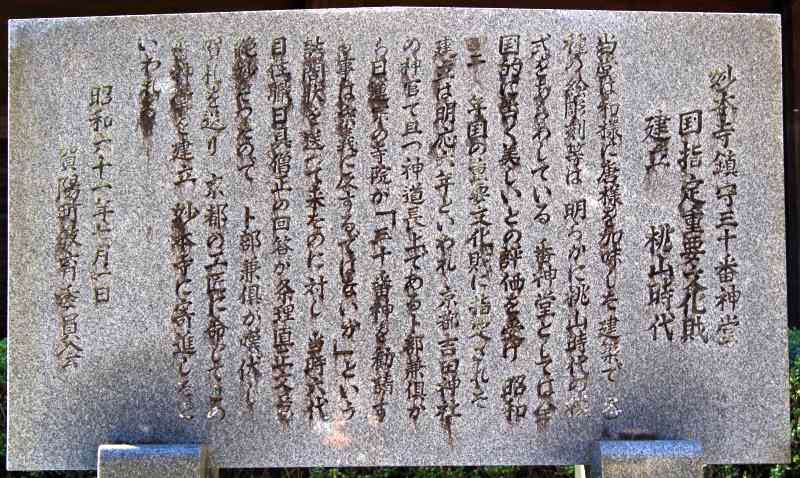 妙本寺鎮守三十番神堂
国指定重要文化財
建立 桃山時代
当堂は和様に唐様を加味した建築で
彫刻等は 明らかに桃山時代の
式をあらわしている 番神堂としては全
国的に 美しいとの評価を受け 昭和
年国の重要文化財に指定された
建立は明応六年といわれ 京都吉田神社
の神官で且つ神道長上である卜部兼倶か
ら日蓮宗の寺院が「三十番神を勧請す
る事は 義に反するではないか」という
詰問状を送って来たのに対し 当時六代
目住職日具僧正の回答が条理 正
卜部兼倶が
を送り 京都の工匠に命じてこの
番神堂を建立 妙本寺に寄進したと
いわれる
昭和六十一年 月一日
賀陽町教育委員会